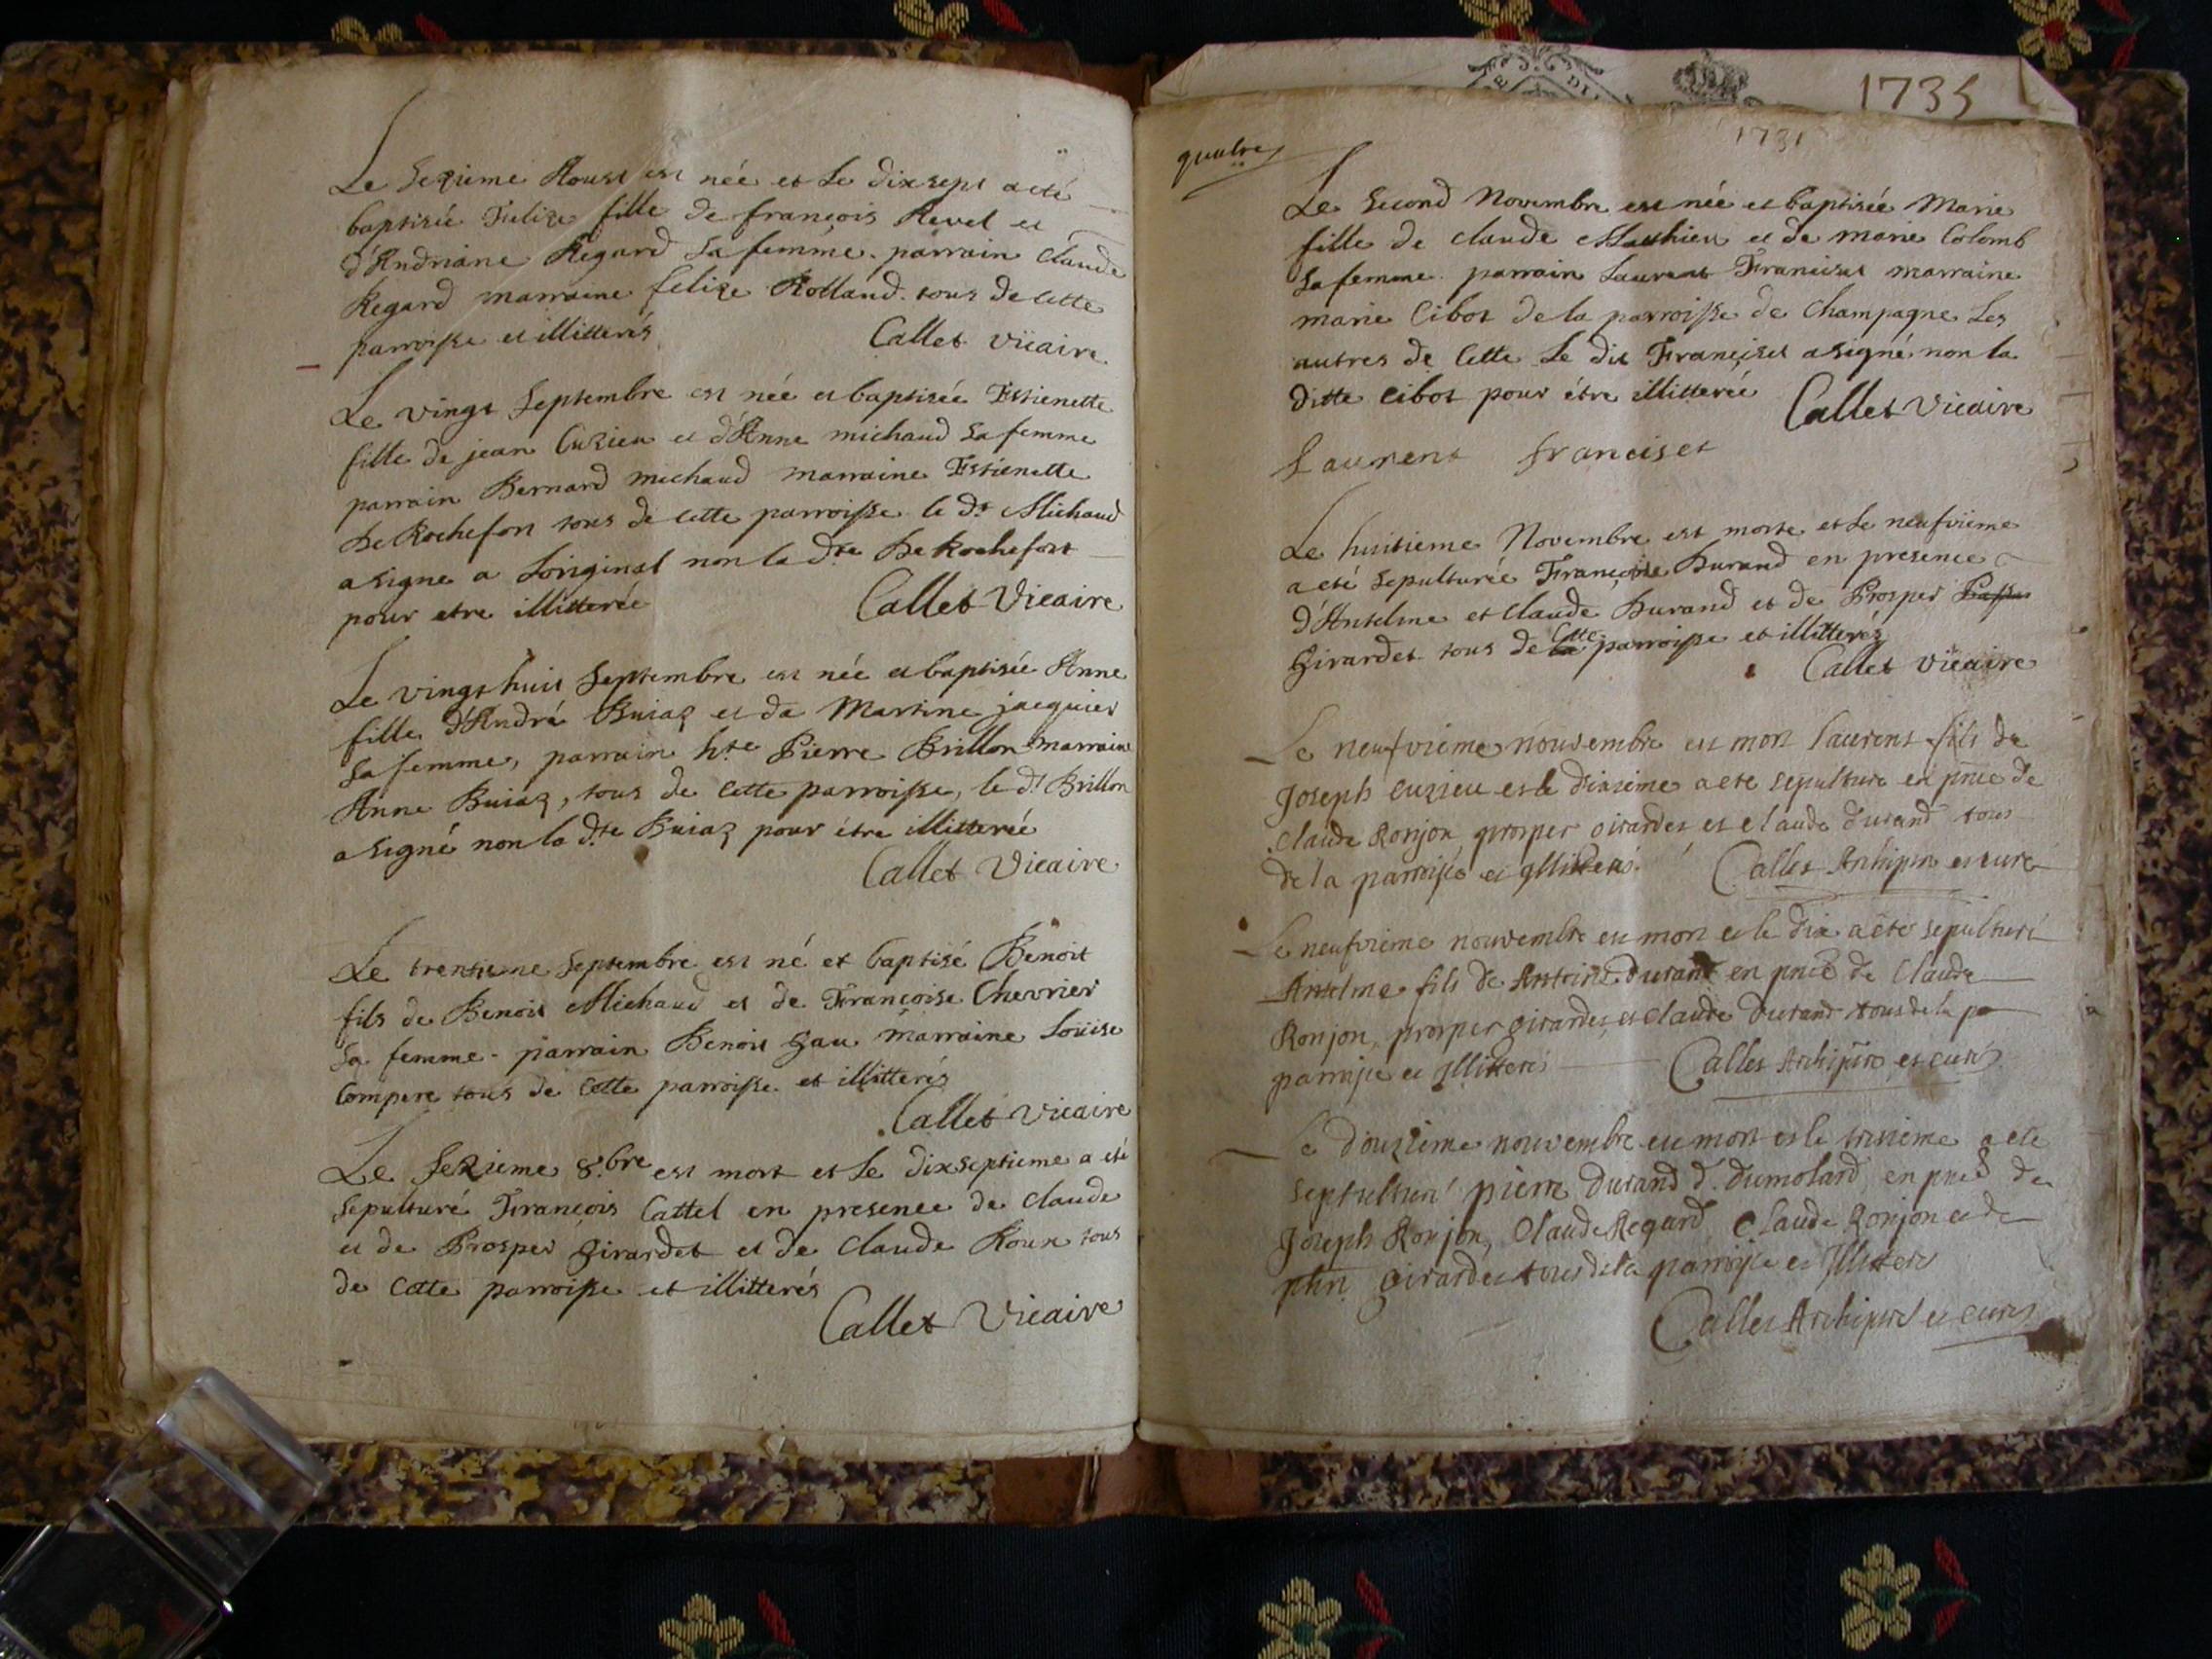 Le Sezieme Aoust est née et Le dixsept a eté
baptisée Felize fille de françois Revel et
d'Andriane Regard Sa femme. parrain Claude
Regard marraine felize Rolland. tous de cette
parroisse et illitterés
Callet Vicaire
Le vingt Septembre est née et baptisée Estienette
fille de jean Cuzieu et d'Anne michaud Sa femme
parrain Bernard michaud marraine Estienette
De Rochefort tous de cette parroisse le dt Michaud
a signe a Loriginal non la dte De Rochefort
pour etre illitterée
Callet Vicaire
Le vingt huit Septembre est née et baptisée Anne
fille d'André Buiaz et de Martine jacquier
Sa femme, parrain hte Pierre Brillon marraine
Anne Buiaz, tous de cette parroisse, le dt Brillon
a signé non la dte Buiaz pour étre illitterée
Callet Vicaire
Le trentieme Septembre est né et baptisé Benoit
fils de Benoit Michaud et de Françoise Chevrier
Sa femme - parrain Benoit Gau marraine Loüise
Compere tous de cette parroisse et illitterés
Callet Vicaire
Le Sezieme 8.bre est mort et Le dixseptieme a eté
Sepulturé François Cattel en presence de Claude
et de Prosper Girardet et de Claude Roux tous
de cette parroisse et illitterés
Callet Vicaire
1735
1731
quatre
Le Second Novembre est née et baptisée Marie
fille de claude Matthieu et de marie Colomb
Sa femme. parrain Laurent Franciset marraine
marie Cibot de la parroisse de Champagne Les
autres de Cette Le dit Franciset a signé non la
ditte Cibot pour étre illitterée
Callet Vicaire
Laurent franciset
Le huitieme Novembre est morte et Le neufvieme
a eté Sepulturée Françoise Durand en presence
d'Anselme et Claude Durand et de Prosper
Girardet tous de Cette parroisse et illitterés
Callet Vicaire
Le neufvieme nouvembre est mort laurent fils de
Joseph cuzieu et le dixieme a ete sepulture en pnce de
Claude Ronjon, prosper girardet et claude durand tous
de la parroisse et Illiteres.
Callet Archiptre et curé
Le neufvieme nouvembre est mort et le dix a eté sepulturé
Anselme fils de Antoine durand en pnce de Claude
Ronjon, prosper girardet et claude durand tous de la pa
parroisse et Illiteres
Callet Archiptre et curé
Le douzieme nouvembre est mort et le treisieme a ete
sepulturé pierre durand d. dumolard, en pnce de
Joseph Ronjon, Claude Regard Claude Ronjon et de
girardet tous de la parroisse et Illiteres
Callet Archiptre et curé